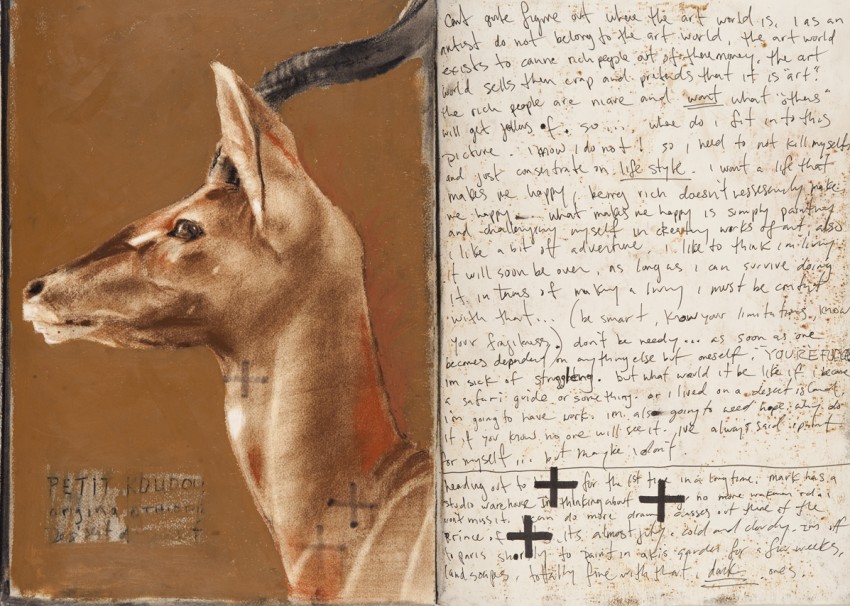 PETIT KOUDOU
cant quite figure out where the art world is, I as an
artist do not belong to the art world, the art world
exists to canne rich people out of there money, the art
world sells them crap and pretends that it is "art".
the rich people are naive and want what "others"
will get jealous of, so.... where do i fit in to this
picture. I know I do not! so I need to not kill myself
and just consentrate on life style. I want a life that
makes me happy, being rich doesn't nessesarily make
me happy. what makes me happy is simply painting
and challenging myself in creating works of art, also
i like a bit off adventure, i like to think im living
it will soon be over, as long as i can survive doing
it, in terms of making a living i must be content
with that... (be smart, know your limitations, know
your fragileness.) don't be needy... as soon as one
becomes dependent on anything else but oneself, YOU'RE FUCKED
im sick of struggleing. but what would it be like if i became
a safari guide or something. or i lived on a desert island,
i'm going to have work. im also going to need hope. why do
it if you know no one will see it. ive always said i paint
for myself... but maybe i don't
heading out to for the 1st time in a long time. mark has a
studio warehouse Im thinking about or no more
wont miss it. can do more classes out there of the
Prince of Its almost july. cold and cloudy. im off
to paris shortly to paint in garden for a few weeks,
landscapes, totally fine with that, dark ones.